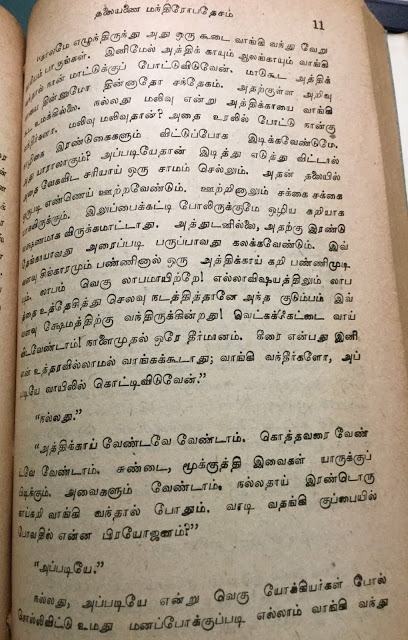 தலையணை மந்திரோபதேசம்
11
எழுந்திருந்து அது ஒரு கூடை வாங்கி வந்து வேறு
பாருங்கள். இனிமேல் அத்திக் காயும் ஆலங்காயும் வாங்கி
நான் மாட்டுக்குப் போட்டுவிடுவேன். மாடுகூட அத்திக்
தின்னுமோ தின்னாதோ சந்தேகம். அதற்குள்ள அறிவு
உமக்கில்லை. நல்லது மலிவு என்று அத்திக்காயை வாங்கி
மலிவு மலிவுதான்? அதை உரலில் போட்டு நான்கு
இரண்டுகைகளும் விட்டுப்போக இடிக்கவேண்டுமே.
யாராலாகும்? அப்படியேதான் இடித்து எடுத்து விட்டால்
அதை வேகவிட சரியாய் ஒரு சாமம் செல்லும். அதன் தலையில்
எண்ணெய் ஊற்றவேண்டும். ஊற்றினாலும் சக்கை சக்கை
இலுப்பைக்கட்டி போலிருக்குமே ஒழிய கறியாக
விருக்கமாட்டாது. அத்துடனில்லை, அதற்கு இரண்டு
தேங்காயாவது அரைப்படி பருப்பாவது கலக்கவேண்டும். இவ்
வளவு சில்காரமும் பண்ணினால் ஒரு அத்திக்காய் கறி பண்ணிமுடி
லாபம் வெகு லாபமாயிற்றே! எல்லாவிஷயத்திலும் லாப
த்தை உத்தேசித்து செலவு நடத்தித்தானே அந்த குடும்பம் இவ்
வளவு க்ஷேமத்திற்கு வந்திருக்கின்றது! வெட்கக்கேட்டை வாய்
விடவேண்டாம்! நாளைமுதல் ஒரே தீர்மானம். கீரை என்பது இனி
என் உத்தரவில்லாமல் வாங்கக்கூடாது; வாங்கி வந்தீர்களோ, அப்
படியே வாயிலில் கொட்டிவிடுவேன்.”
“நல்லது.”
“அத்திக்காய் வேண்டவே வேண்டாம். கொத்தவரை வேண்
டவே வேண்டாம். சுண்டை, மூக்குத்தி இவைகள் யாருக்குப்
பிடிக்கும். அவைகளும் வேண்டாம். நல்லதாய் இரண்டொரு
வாங்கி வந்தால் போதும். வாடி வதங்கி குப்பையில்
போவதில் என்ன பிரயோஜனம்?”
“அப்படியே.”
நல்லது, அப்படியே என்று வெகு யோக்கியர்கள் போல்
சொல்லிவிட்டு உமது மனப்போக்குப்படி எல்லாம் வாங்கி வந்து